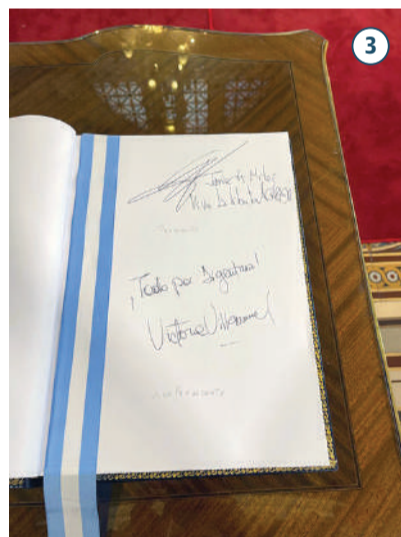 3
Javier Milei
Viva La Libertad CARAJO
¡Todo por Argentina!
Victoria Villarruel
Vicepresidente